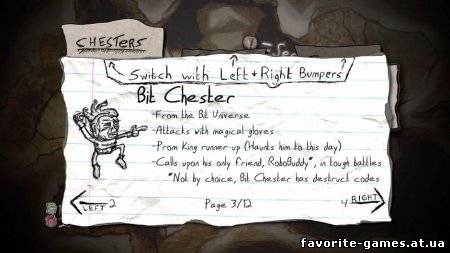 CHESTERS
Switch with Left + Right Bumpers
Bit Chester
-From the Bit Universe
-Attacks with magical gloves
-Prom King runner up (Haunts him to this day)
-Calls upon his only friend, RoboBuddy*, in tough battles
*Not by choice, Bit Chester has destruct codes
LEFT 2 Page 3/12 4 RIGHT
favorite-games.at.ua